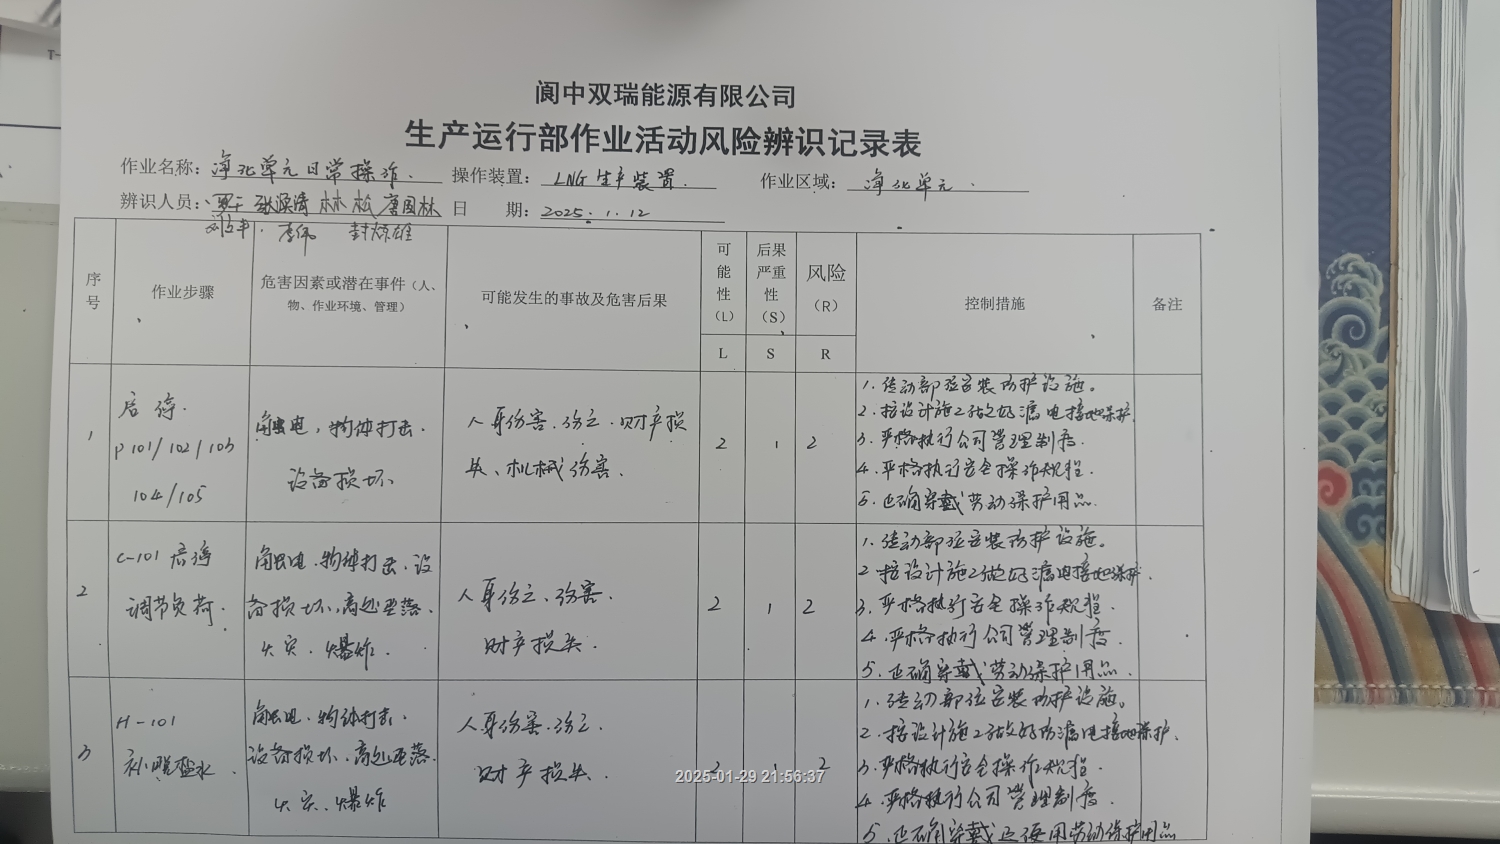 T-
阆中双瑞能源有限公司
生产运行部作业活动风险辨识记录表
作业名称：净化单元日常操作. 操作装置：LNG生产装置. 作业区域：净化单元.
辨识人员：林松 唐国林 日 期：2025.1.12
李伟
序号 作业步骤 危害因素或潜在事件（人、物、作业环境、管理） 可能发生的事故及危害后果 可能性（L） 后果严重性（S） 风险（R） 控制措施 备注
L S R
1
启停.
P101/102/103
104/105
触电，物体打击.
设备损坏
人身伤害.伤亡.财产损
失、机械伤害.
2 1 2
1.传动部位安装防护设施。
2.按设计施工做好漏电接地保护.
3.严格执行公司管理制度.
4.严格执行安全操作规程.
5.正确穿戴劳动保护用品.
2
C-101启停
调节负荷.
触电.物体打击.设
备损坏、高处坠落.
火灾、爆炸.
人身伤亡、伤害.
财产损失.
2 1 2
1.传动部位安装防护设施。
2按设计施工做好漏电接地保护.
3.严格执行安全操作规程.
4.严格执行公司管理制度.
5.正确穿戴劳动保护用品.
3
H-101
补脱盐水.
触电.物体打击.
设备损坏.高处坠落.
火灾、爆炸
人身伤害.伤亡.
财产损失.
2 1 2
1.传动部位安装防护设施。
2.按设计施工做好防漏电接地保护.
3.严格执行安全操作规程.
4.严格执行公司管理制度.
5.正确穿戴正使用劳动保护用品
2025-01-29 21:56:37